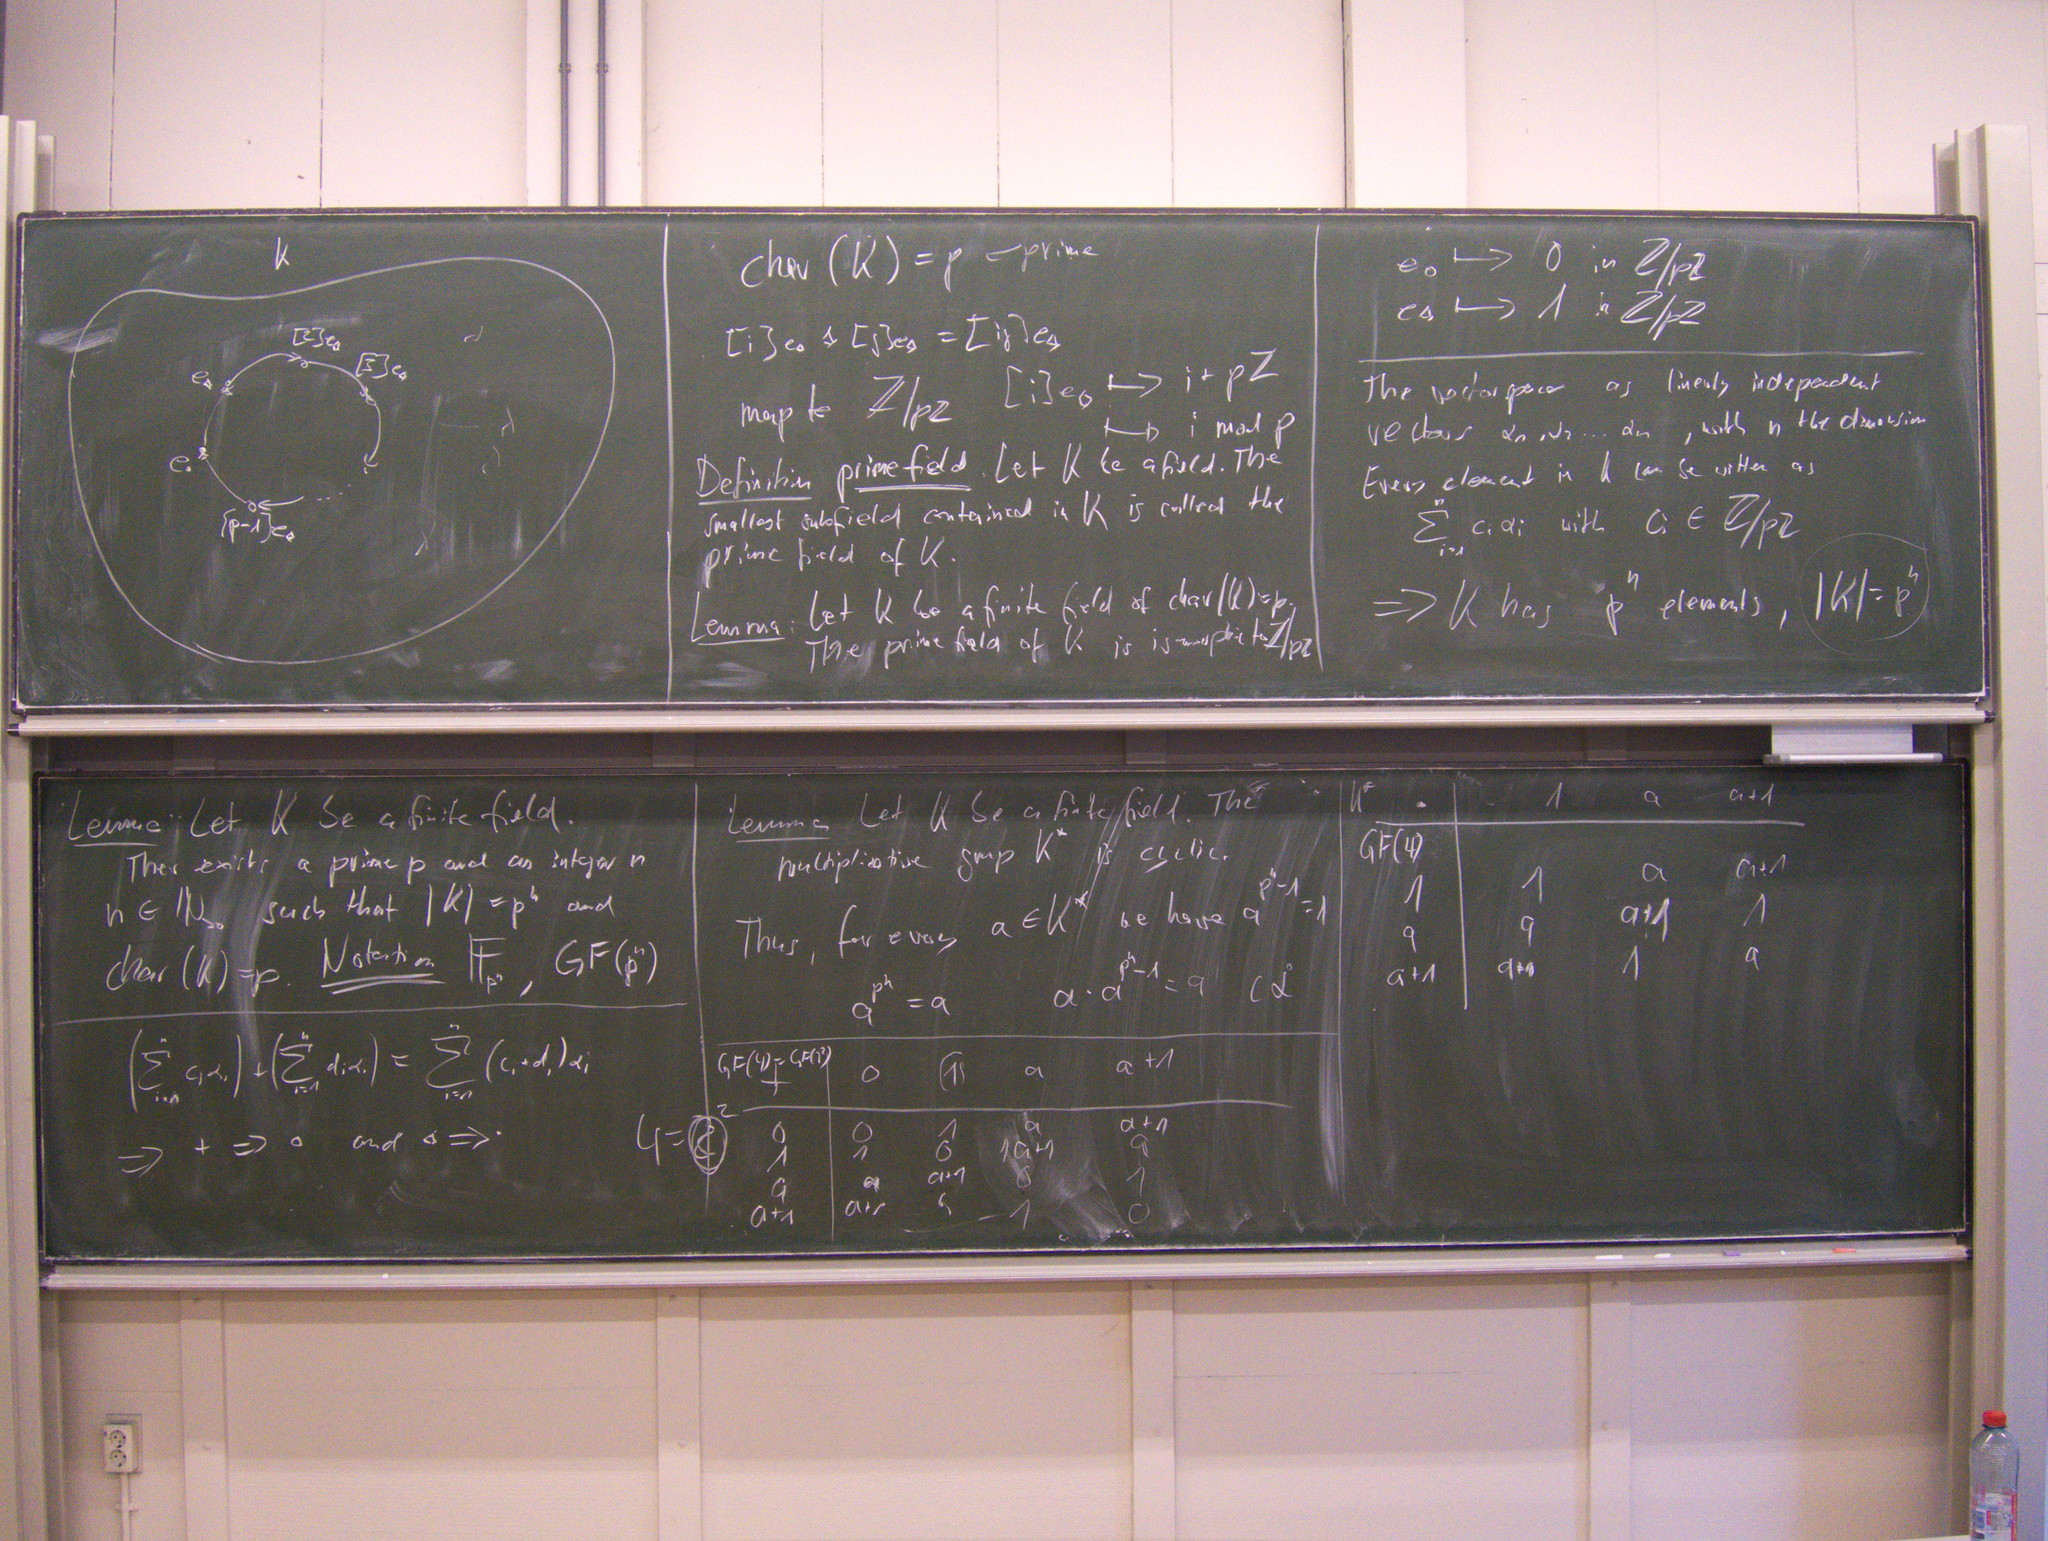 K
[2]e△
[3]e△
e△
e₀
[p-1]e△
char (K) = p - prime
[i]e△ △ [j]e△ = [ij]e△
map to ℤ/pℤ [i]e△ ↦ i + pℤ
↦ i mod p
Definition prime field. Let K be a field. The
smallest subfield contained in K is called the
prime field of K.
Lemma: Let K be a finite field of char(K)=p.
The prime field of K is isomorphic to ℤ/pℤ
e₀ ↦ 0 in ℤ/pℤ
e△ ↦ 1 in ℤ/pℤ
The vectorspace as linearly independent
vectors α₁, α₂ ... αn, with n the dimension
Every element in K can be written as
∑ⁿᵢ₌₁ cᵢ αᵢ with cᵢ ∈ ℤ/pℤ
⇒ K has pⁿ elements, |K| = pⁿ
Lemma: Let K be a finite field.
Ther exists a prime p and an integer n
n ∈ ℕ>0 such that |K| = pⁿ and
char (K) = p. Notation 𝔽pⁿ, GF(pⁿ)
(∑ⁿᵢ₌₁ cᵢαᵢ) + (∑ⁿᵢ₌₁ dᵢαᵢ) = ∑ⁿᵢ₌₁ (cᵢ+dᵢ)αᵢ
⇒ + ⇒ ∘ and △ ⇒ ·
Lemma Let K be a finite field. The
multiplicative group K* is cyclic.
Thus, for every a ∈ K* we have a^(pⁿ-1) = 1
a^(pⁿ) = a a · a^(pⁿ-1) = a
GF(4) = GF(2²)
+ 0 1 a a+1
4 = 2²
0 0 1 a a+1
1 1 0 a+1 a
a a a+1 0 1
a+1 a+1 a 1 0
K* · 1 a a+1
GF(4)
1 1 a a+1
a a a+1 1
a+1 a+1 1 a